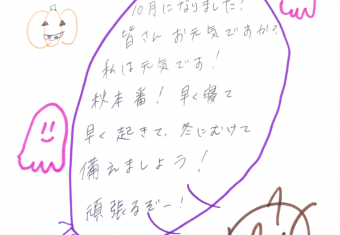 10月になりました!
皆さん お元気ですか?
私は元気です!
秋本番! 早く寝て
早く起きて、冬にむけて
備えましょう!
頑張るぞー!